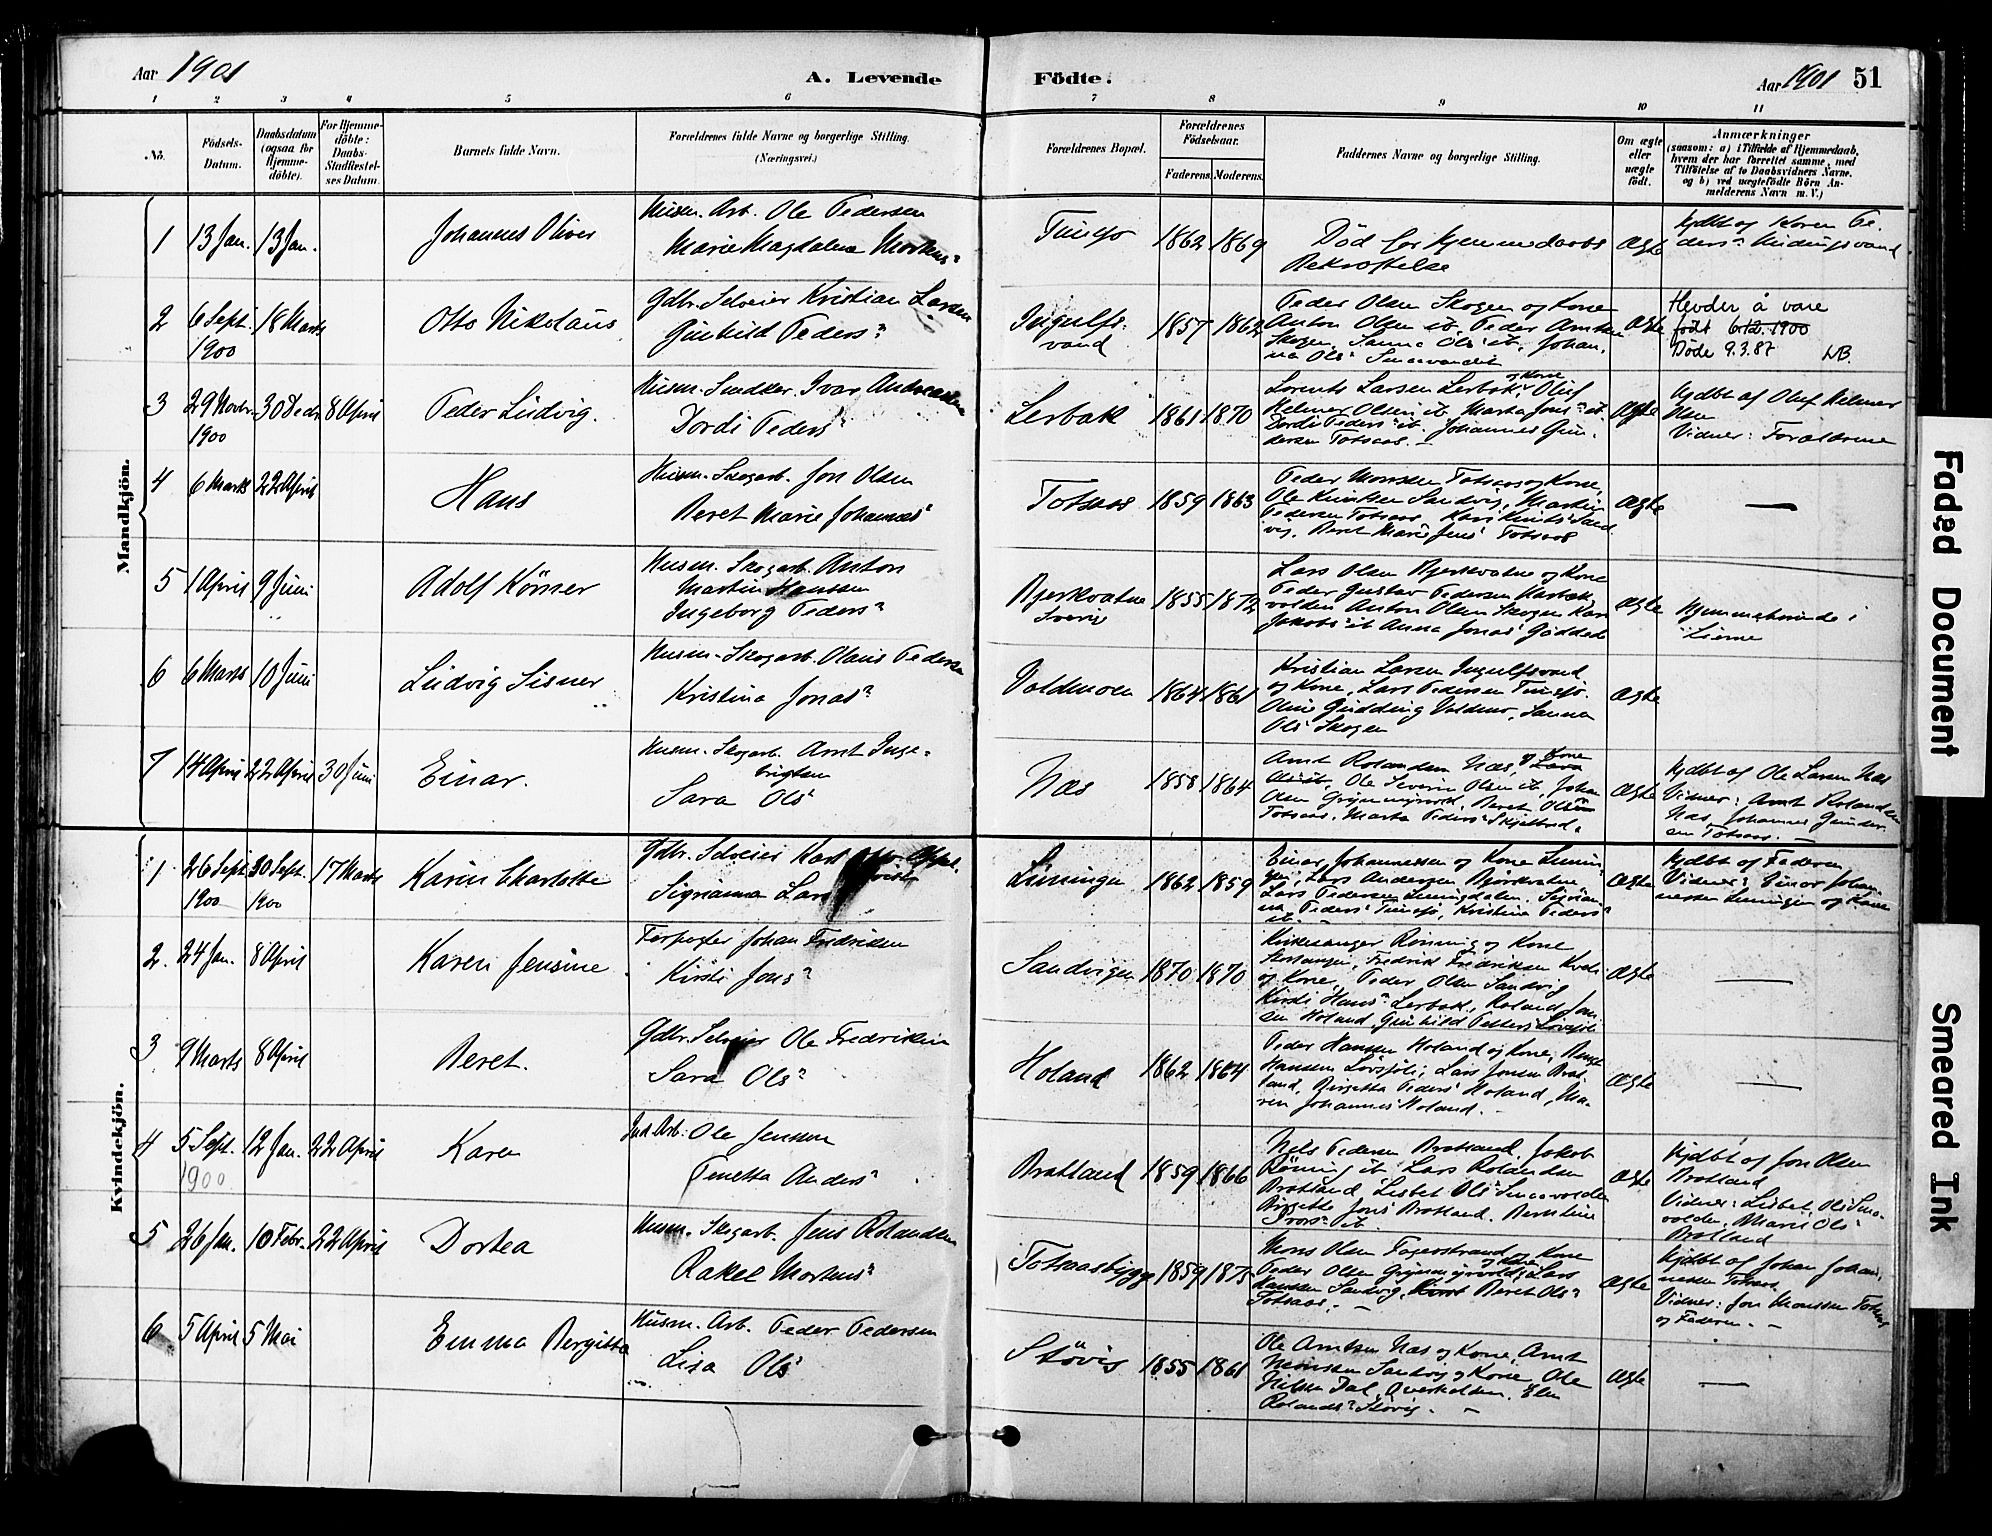 Aar 1901
A. Levende
Födte.
Aar 1901 51
1 2 3 4 5 6 7 8 9 10 11
No.
Födsels-
Datum.
Daabsdatum
(ogsaa for
Hjemme-
döbte).
For Hjemme-
döbte:
Daabs-
Stadfæstel-
ses Datum.
Barnets fulde Navn.
Forældrenes fulde Navne og borgerlige Stilling.
(Næringsvei.)
Forældrenes Bopæl.
Forældrenes
Födselsaar.
Faderens. Moderens.
Faddernes Navne og borgerlige Stilling.
Om ægte
eller
uægte
født.
Anmærkninger
(saasom: a) i Tilfælde af Hjemmedaab,
hvem der har forrettet samme, med
Tilföielse af to Daabsvidners Navne.
og b) ved uægtefödte Börn An-
melderens Navn m. V.)
Mandkjön.
1 13 Jan. 13 Jan. Johannes Oliver
Husm. Arb. Ole Pedersen
Marie Magdalena Mortens
Tunsjø 1862 1869
Død før hjemmedaabs
Bekræftelse
Ægte
hjdbt og Konen Pe-
ders
2 6 Sept. 1900 18 Marts Otto Nikolaus
Gdbr. Selveier Kristian Larsen
Gunhild Peders
Ingulfs-
vand
1857 1862
Peder Olsen Skogen og Kone
Anton Olsen ib. Peder Arntsen
Skogen, Sanna Ols ib. Johan-
na Ols
Ægte
Hevder å være
født 6.12.1900
Døde 9.3.87
3 29 Novbr. 1900 30 Decbr 8 April Peder Ludvig.
Husm. Snedker Ivar Andreassen
Dordi Peders
Lerbak 1861 1870
Lorents Larsen Lerbak og Kone, Oluf
Helmer Olsen ib. Marta Jons ib.
Dordi Peders ib. Johannes Gun-
dersen Totsaas.
Ægte
Hjdbt af Oluf Helmer
Olsen
Vidner: Forældrene
4 6 Marts 22 April Hans
Husm. Skogarb. Jon Olsen
Beret Marie Johannes
Totsaas 1859 1863
Peder Monssen Totsaas og Kone,
Ole Knutsen Sandvig, Martin
Pedersen Totsaas, Kari Knuts Sand-
vig, Beret Marie Jens Totsaas
Ægte —
5 1 April 9 Juni Adolf Körner
Husm. Skogarb. Anton
Martin Hanssen
Ingeborg Peders
Bjerkvatne
Sverig
1855 1872
Lars Olsen Bjerkvatne og Kone
Peder Gustav Pedersen
volden Anton Olsen Skogen Kari
Jakobs ib Anna Jonas Gäddede
Ægte
Hjemmehørende i
Lierne
6 6 Marts 10 Juni Ludvig Sisner
Husm. Skogarb. Olaus Pedersen
Kristina Jonas
Voldmoen 1864 1861
Kristian Larsen Ingulfsvand
og Kone, Lars Pedersen Tunsjø.
Oline Gudding Voldmo, Sanna
Ols Skogen
Ægte
7 14 April 22 April 30 Juni Einar.
Husm. Skogarb. Arnt Inge-
brigtsen
Sara Ols
Næs 1858 1864
Arnt Rolandsen Næs, og Kone
Ole Severin Olsen ib, Johan
Olsen Grønmyrvold, Beret Ols
Totsaas, Marta Peders
Ægte
hjdbt af Ole Larsen Næs
Vidner: Arnt Rolandsen
Næs, Johannes Gunder-
sen Totsaas. —
Kvindekjön.
1 26 Sept. 1900 30 Sept. 1900 17 Marts Karin Charlotte
Gdbr. Selveier Karl
Sigrianna Lars
Limingen 1862 1859
Einar Johannessen og Kone Limin-
gen, Lars Andersen Bjørkvatne
Lars Pedersen Limingdalen,
na Peders Tunsjø, Kristina Peders
ib. —
Ægte
hjdbt af Faderen
Vidner: Einar Johan-
nessen Limingen og Kone
2. 24 Jan. 8 April Karen Jensine
Forpagter Johan Fredriksen
Kirsti Jons
Sandvigen 1870 1870
Kirkesanger Rönning og Kone
Fredrik Fredriksen
og Kone, Peder Olsen Sandvig
Kirsti Hans Lerbak, Roland Jon-
sen Holand Gunhild Petters
Ægte —
3 9 Marts 8 April Beret.
Gdbr. Selveier Ole Fredriksen
Sara Ols
Holand 1862 1864
Peder Hanssen Holand og Kone, Bengt
Hanssen Lövsjöli, Lars Jonsen Brat-
land, Birgitta Peders Holand, Ma-
ren Johannes Holand. —
Ægte —
4 5 Sept. 1900 12 Jan. 22 April Karen
Ind. Arb. Ole Jenssen
Tenetta Anders
Bratland 1859 1866
Nels Pedersen Bratland. Jakob
Röning ib Lars Rolandsen
Bratland Lisbet Ols Smaavolden
Birgitte Jons Bratland. Berntine
Ivars ib.
Ægte
Hjdbt af Jon Olsen
Bratland
Vidner: Lisbet Ols Sma-
volden, Marit Ols
Bratland
5 26 Jan. 10 Febr. 22 April Dortea
Husm. Skogarb. Jens Rolandsen
Rakel Mortens
Totsaasbygg 1859 1875
Mons Olsen Fagerstrand og Kone
Peder Olsen Grønmyrvold og Kone, Lars
Hanssen Sandvig, Beret Ols
Totsaas. —
Ægte
Hjdbt af Johan Johan-
nessen Totsaas.
Vidner: Jon Monssen Totsaas
og Faderen. —
6 5 April 5 Mai Emma Bergitta
Husm. Arb. Peder Pedersen
Lisa Ols
Stövis 1855 1861
Ole Arntsen Næs og Kone, Arnt
Sandvig og Kone Ole
Nilsen Dal, Elen
Rolands Stövig. —
Ægte —
Faded Document
Smeared Ink